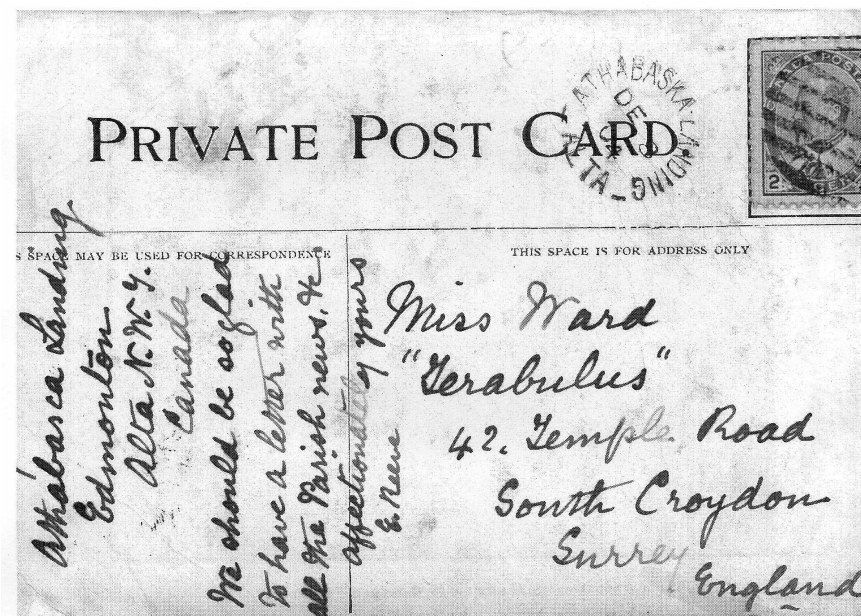 PRIVATE POST CARD.
ATHABASKA LANDING
ALTA
DE
2
S SPACE MAY BE USED FOR CORRESPONDENCE
THIS SPACE IS FOR ADDRESS ONLY
Athabasca Landing
Edmonton
Alta N.W.T.
Canada
We should be so glad
to have a letter with
all the Parish news. &c
affectionately yours
E Reeve
Miss Ward
"Terabulus"
42. Temple Road
South Croydon
Surrey
England